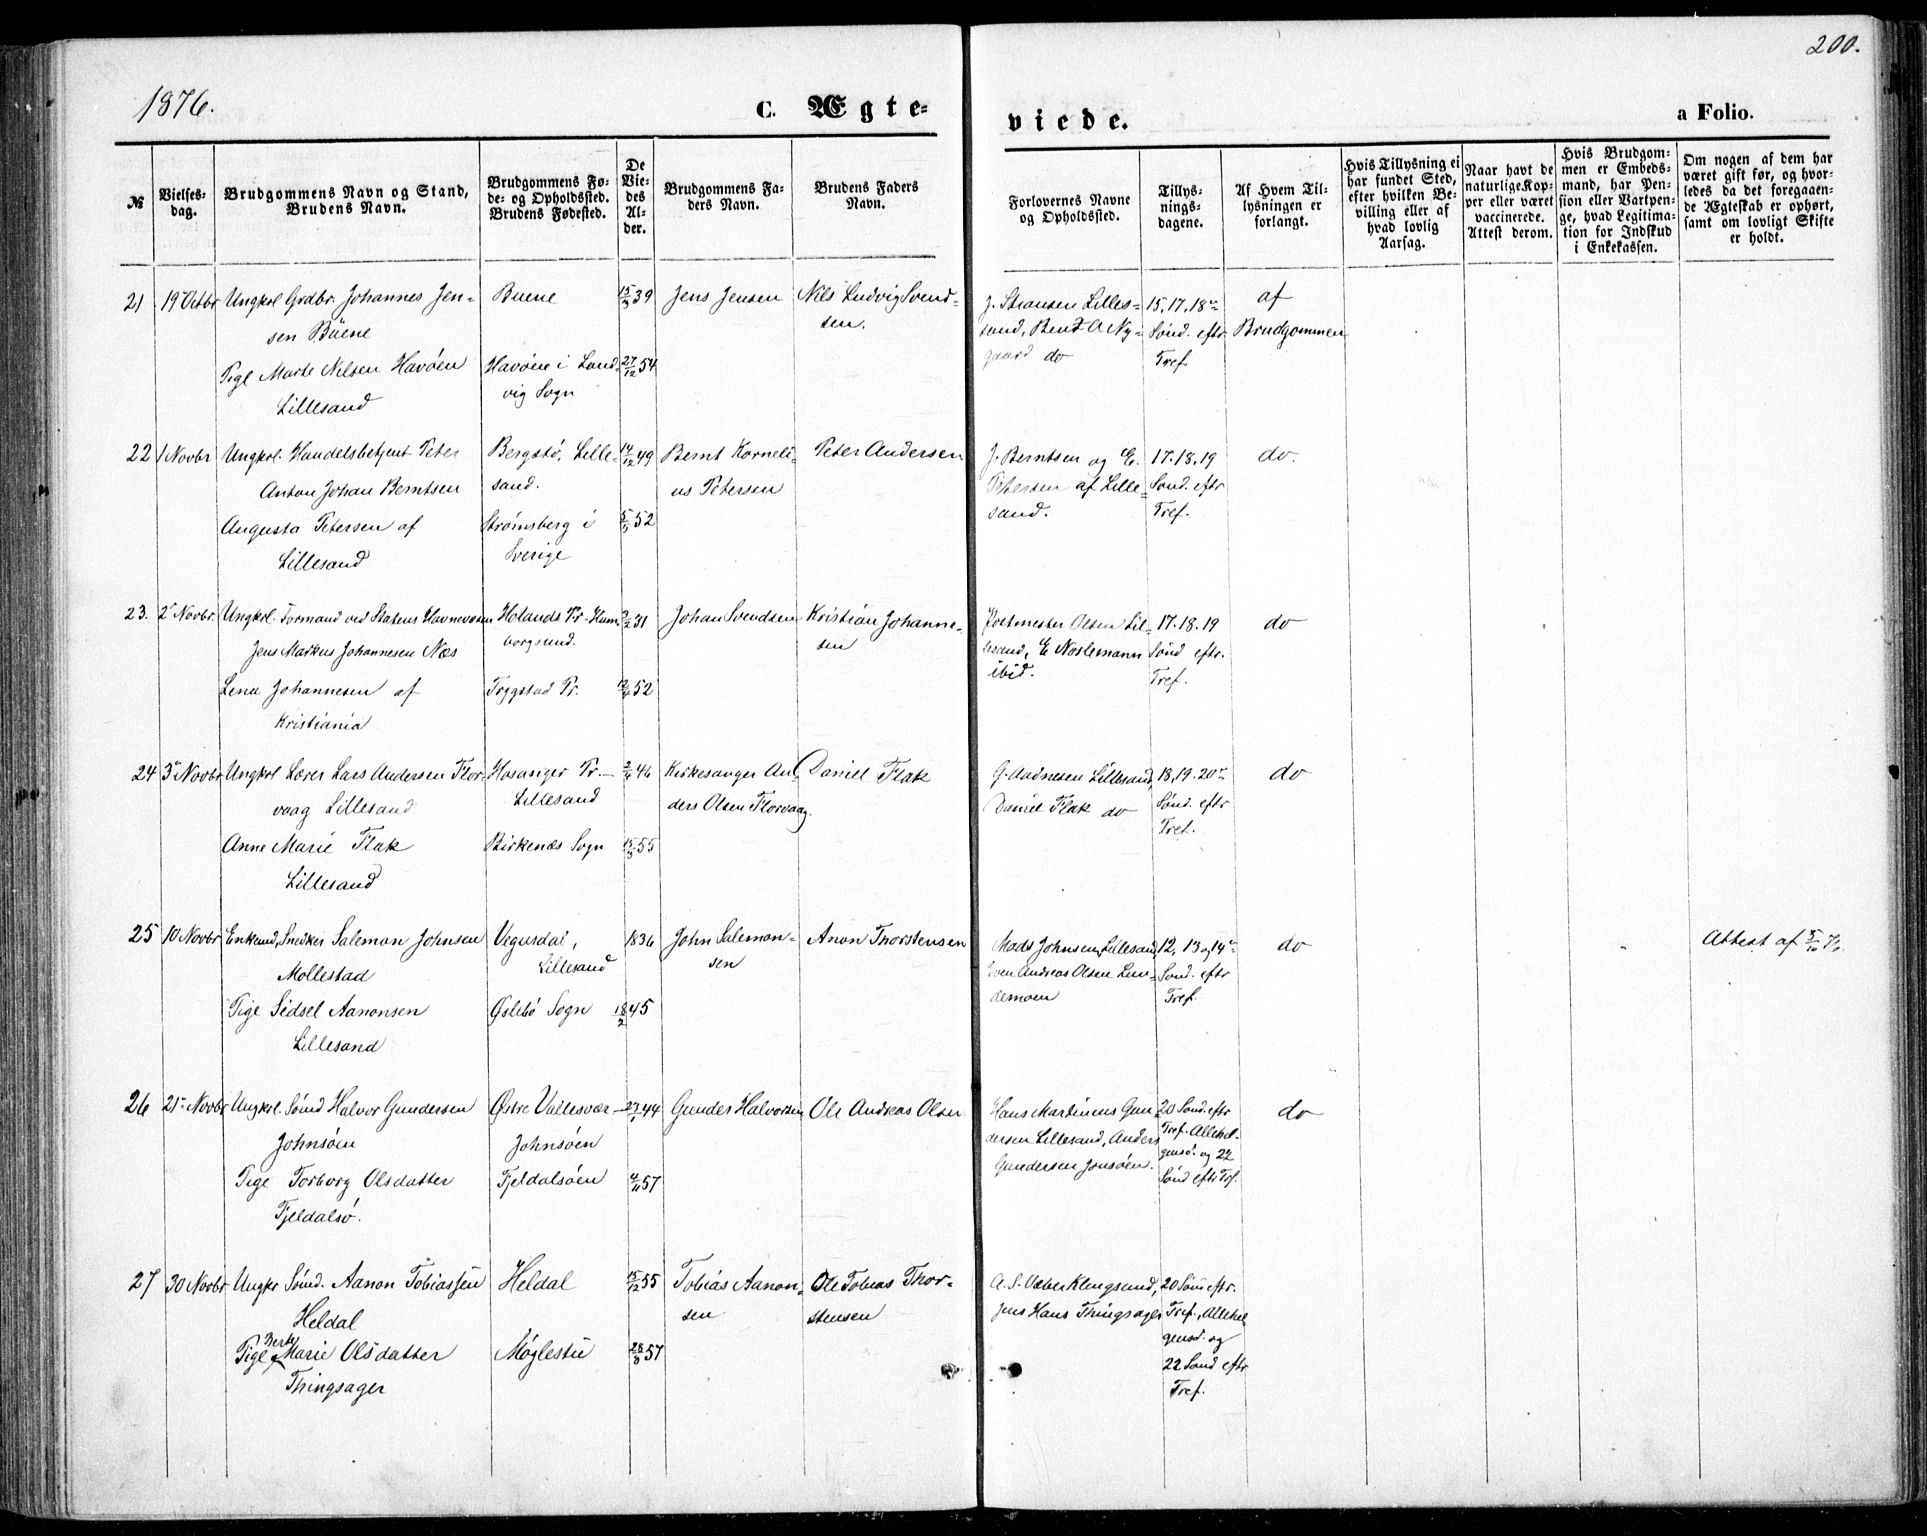 1876.
200.
C. Ægte-
viede.
a Folio.
№
Vielses-
dag.
Brudgommens Navn og Stand,
Brudens Navn.
Brudgommens Fø-
de- og Opholdssted.
Brudens Fødested.
De
Vie-
des
Al-
der.
Brudgommens Fa-
ders Navn.
Brudens Faders
Navn.
Forlovernes Navne
og Opholdssted.
Tillys-
nings-
dagene.
Af Hvem Til-
lysningen er
forlangt.
Hvis Tillysning ei
har fundet Sted,
efter hvilken Be-
villing eller af
hvad lovlig
Aarsag.
Naar havt de
naturlige Kop-
per eller været
vaccinerede.
Attest derom.
Hvis Brudgom-
men er Embeds-
mand, har Pen-
sion eller Vartpen-
ge, hvad Legitima-
tion for Indskud
i Enkekassen.
Om nogen af dem har
været gift før, og hvor-
ledes da det foregaaen-
de Ægteskab er ophørt,
samt om lovligt Skifte
er holdt.
21
19 Octbr
Ungkrl Grdbr. Johannes Jen-
sen Büene
Pige Marte Nilsen Havöen
Lillesand
Buene
Havöene i Land-
vig Sogn
15/3 39
27/12 54
Jens Jensen
Nils Ludvig Svend-
sen.
Lilles-
sand, Bent A Ny-
gaard do
15, 17, 18de
Sönd. eftr
Tref.
af
Brudgommen
22
1 Novbr
Ungkrl. Handelsbetjent Peter
Anton Johan Berntsen
Augusta Petersen af
Lillesand
Bergstö, Lille-
sand.
Strömsberg i
Sverige
14/12 49
52
Bernt Korneli-
us Petersen
Peter Andersen
J. Berntsen og E.
Petersen af Lille-
sand.
17. 18. 19
Sond. eftr
Tref.
do.
23.
2 Novbr.
Ungkrl. Formand ved Statens Havnevæsen
Jens Markus Johannesen Næs
Lena Johannesen af
Kristiania
Hölands Pr. - Hum-
borgsund.
Trygstad Pr.
31
52
Johan Svendsen
Kristian Johanne-
sen
Postmester Olsen Lil-
lesand, E Noslemann
ibid.
17. 18. 19
Sönd eftr.
Tref.
do
24
3 Novbr
Ungkrl Lærer Lars Andersen Flor-
vaag Lillesand
Anne Marie Flak
Lillesand
Hosanger Pr. -
Lillesand
Birkenæs Sogn
46
15/3 55
Kirkesanger An-
ders Olsen Florvaag.
Daniel Flak
G. Aadnesen Lillesand,
Daniel Flak do
18, 19. 20de
Sönd. eftr
Tref.
do
25
10 Novbr
Enkemd, Snedker Salemon Johnsen
Mollestad
Pige Sidsel Aanonsen
Lillesand
Vegusdal,
Lillesand
Øslebö Sogn
1836
18/2 45
John Salemon-
sen
Anon Thorstensen
Mads Johnsen, Lillesand,
Even Andreas Olsen Lun-
demoen
12, 13 og 14de
Sond. eftr
Tref.
do
Attest af 5/10 76.
26
21 Novbr
Ungkrl. Sömd Halvor Gundersen
Johnsöen
Pige Torborg Olsdatter
Fjeldalsö.
Østre Vallesvær -
Johnsöen
Fjeldalsöen
44
57
Gunder Halvorsen
Ole Andreas Olsen
Hans Martinius Gun-
dersen Lillesand, Anders
Gundersen Jonsöen.
20 Sond. eftr
Tref. Allehel-
gensd. og 22
Sönd eftr Trf.
do
27
30 Novbr
Ungkr Sömd. Aanon Tobiassen
Heldal
Pige Berte Marie Olsdatter
Thingsager
Heldal
Møglestu
15/12 55
28/8 57
Tobias Aanon-
sen
Ole Tobias Thor-
stensen
Klingsund,
Jens Hans Thingsager
20 Sönd eftr.
Tref., Allehel-
gensd. og
22 Sond eftr
Tref.